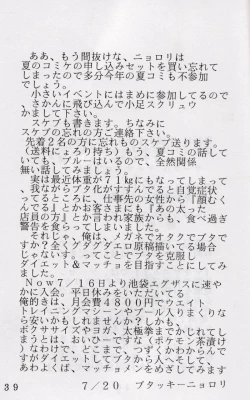 ああ、もう間抜けな、ニョロリは
夏のコミケの申し込みセットを買い忘れて
しまったので多分今年の夏コミも不参加
でしょう。
小さいイベントにはまめに参加してるので
、さかんに飛び込んで小足スクリュウ
かまして下さい。
スケブも書きます。ちなみに
スケブの忘れの方ご連絡下さい。
先着2名の方に忘れものスケブ送ります。
(送料にょろり持ち)もう、夏コミの話して
いても、ブルーはいるので、全然関係
無い話してみましょう。
実は最近体重が71kgにもなってしまって
、我ながらブタ化がすすんでると自覚症状
ってるところに、仕事先の女性から「顔むく
んでる」とかお客さまにも「あの太った
店員の方」とか言われ家族からも、食べ過ぎ
警告を食らってしまいました。
それじゃ、俺は、メガネでオタクでブタで
すか?全くダグダグエロ原稿描いてる場合
じゃないす。ってことでブタを克服し
ダイエット&マッチョを目指すことにしてみ
ました。
Now7/16日より池袋エグザスに速や
かに入会。平日休みをいただいてる
俺的きは、月会費4800円でウエイト
トレイニングマシーンやプール入りまくりなら
安いかもしれませんか?しかも、
ボクササイズやヨガ、太極拳までかじれてし
まうとは、おいひーですな(ポケモン茶漬け
しなわけで、どこまで、つづくかわからんで
すがダイエットしてブタから人へそして、
あわよくば、マッチョメンをめざしてみます
39 7/20 ブタッキーニョロリ